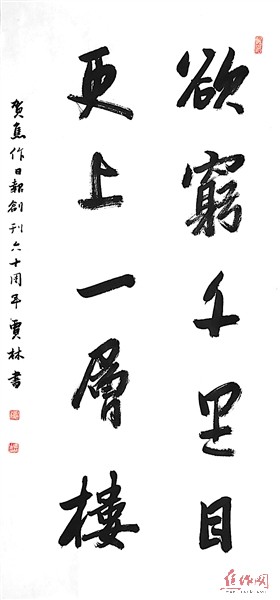 欲窮千里目
更上一層樓
贺焦作日報創刊六十周年賈林書
焦作网